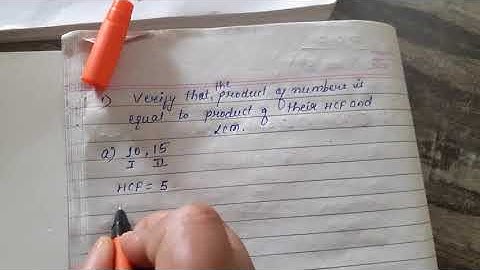 1) Verify that the product of numbers is
equal to product of their HCF and
LCM.
a) 10, 15
I II
HCF = 5